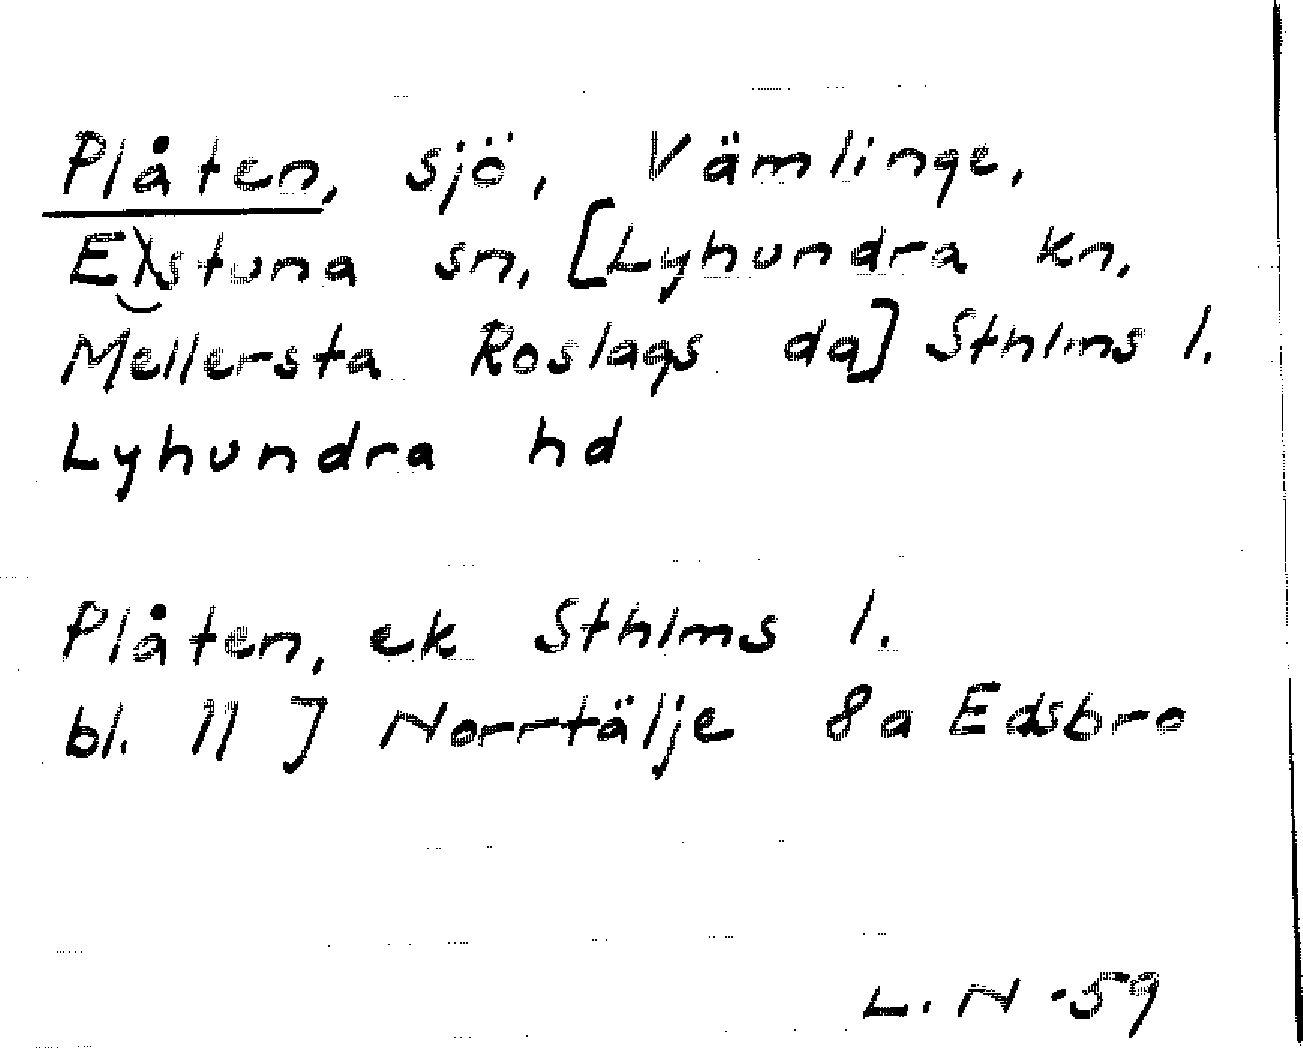 Plåten, sjö, Vämlinge,
Estuna sn, [Lyhundra kn,
Mellersta Roslags dg] Sthlms l.
Lyhundra hd
Plåten, ek Sthlms l.
bl. 11 J Norrtälje 8a Edsbro
L. N -59